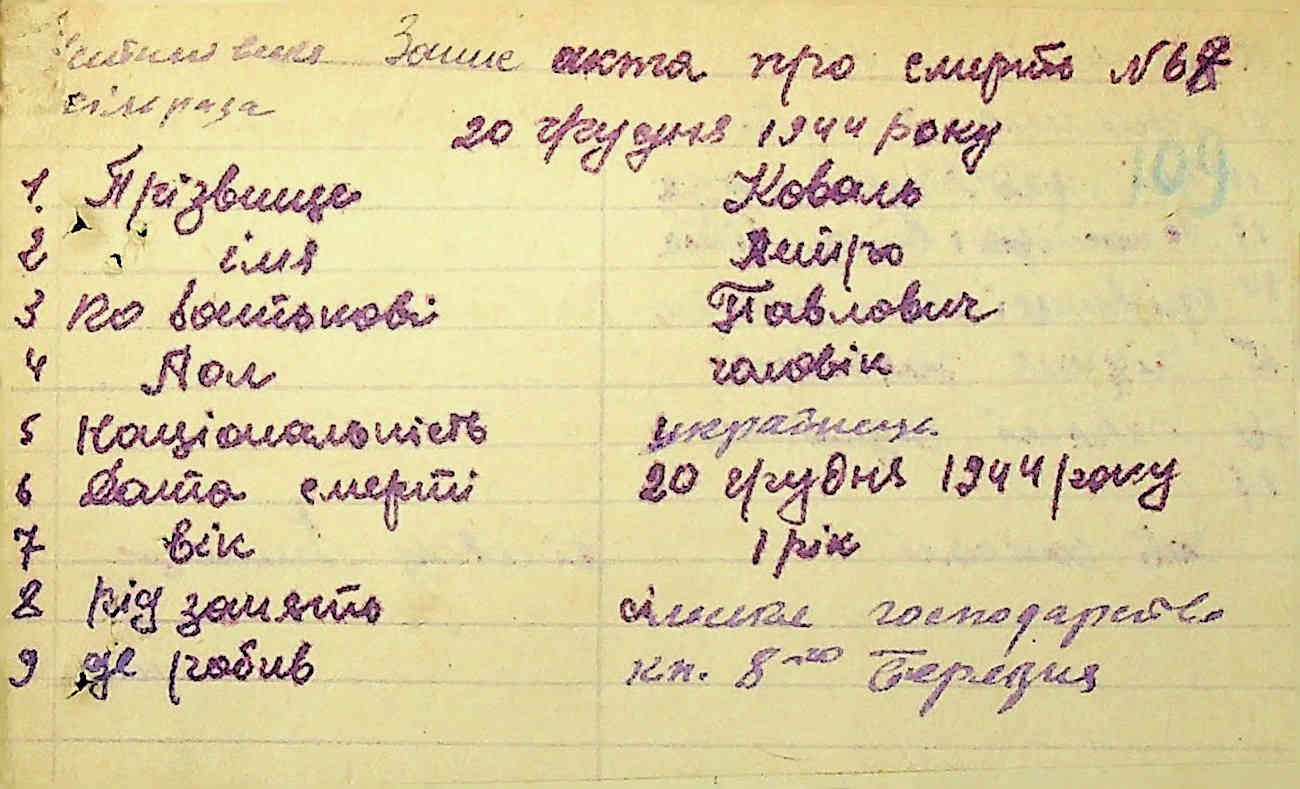 Запис акта про смерть №68
сільрада
20 грудня 1944 року
1. Прізвище Коваль
2 імя Петро
3 по батькові Павлович
4 Пол чоловік
5 Національність українець
6 Дата смерті 20 грудня 1944 року
7 вік 1 рік
8 рід занять сільське господарство
9 де робив кп. 8-го Березня
109